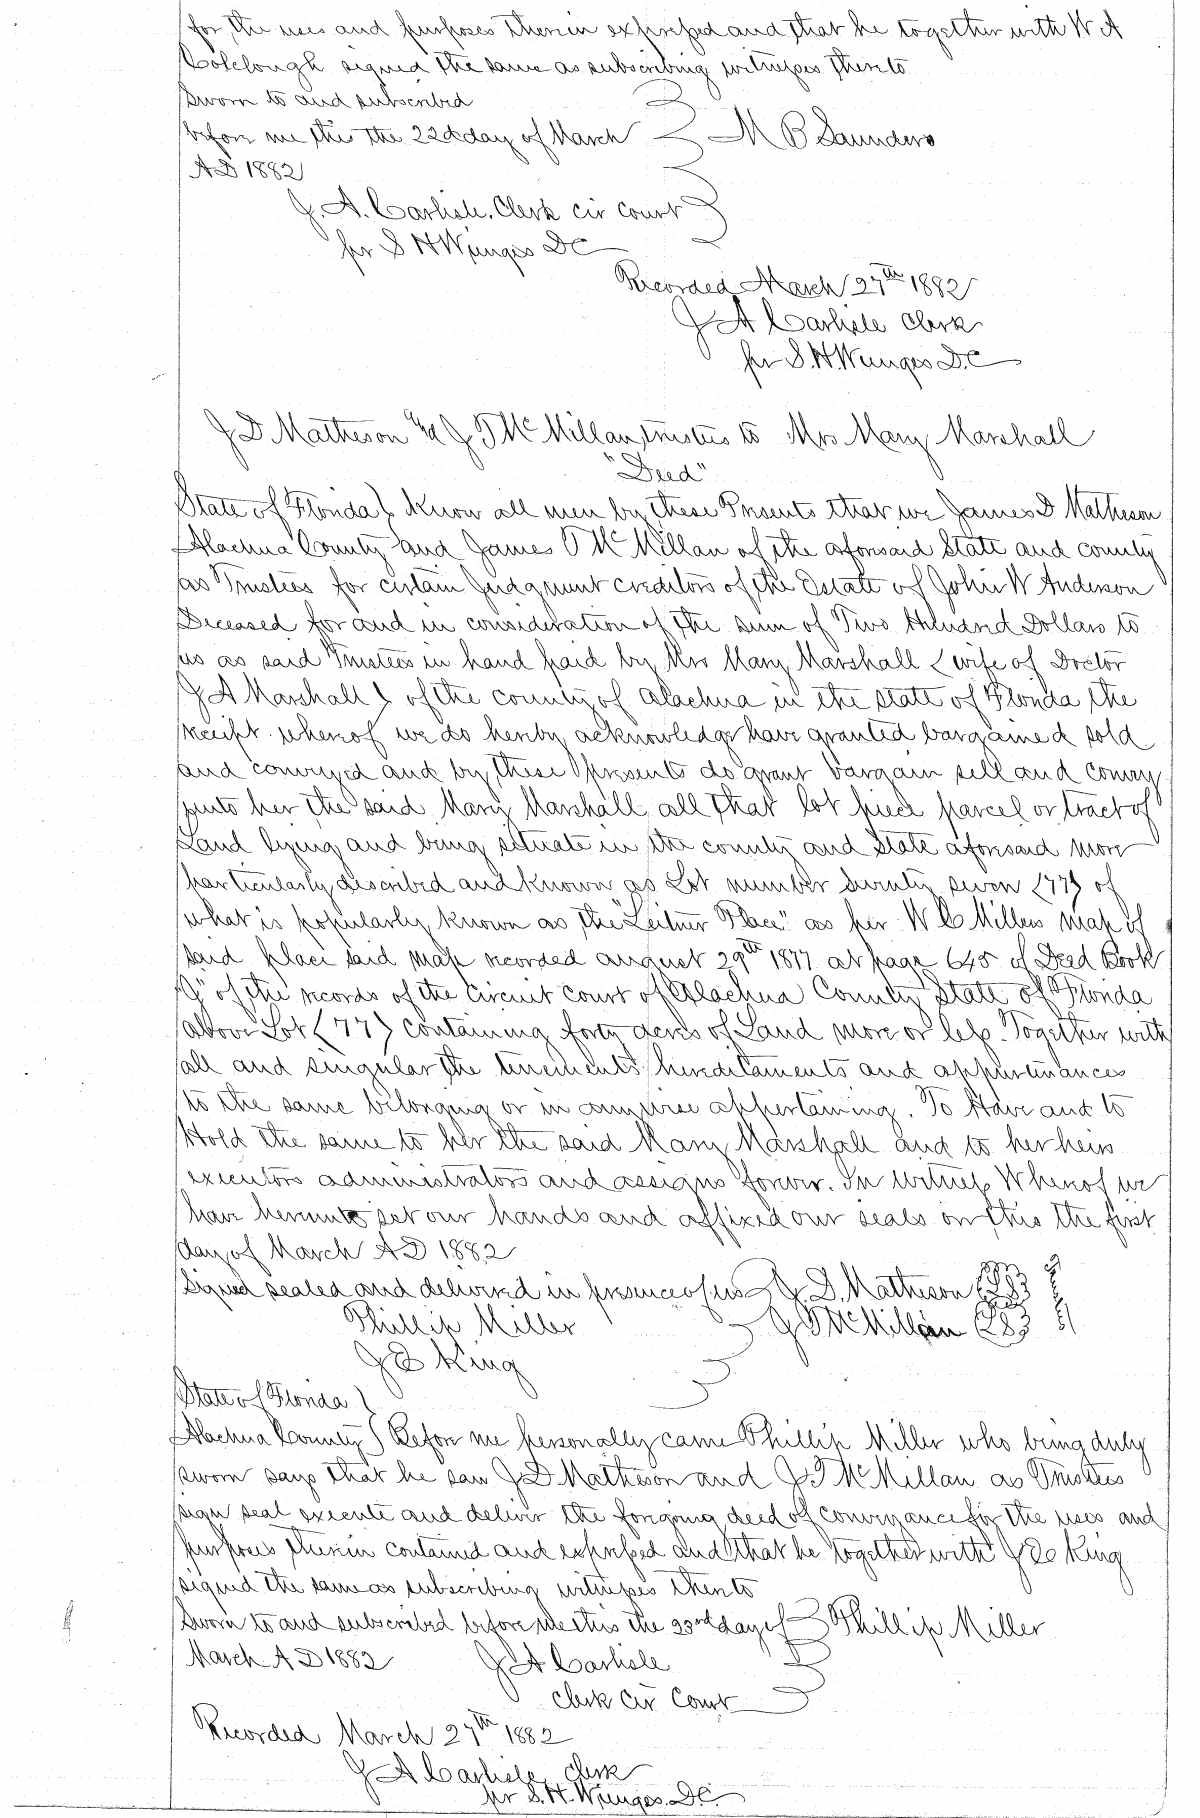 for the uses and purposes therein expressed and that he together with W A
Colclough signed the same as subscribing witnesses thereto
Sworn to and subscribed
before me this the 22d day of March M B Saunders
AD 1882
J. A. Carlisle. Clerk cir court
per S H Wienges DC
Recorded March 27th 1882
J A Carlisle Clerk
per S. H. Wienges D.C
J D Matheson and J T McMillan, trustees to Mrs Mary Marshall
"Deed"
State of Florida } Know all men by these Presents that we James D Matheson
Alachua County and James T McMillan of the aforesaid State and county
as Trustees for certain Judgment creditors of the Estate of John W Anderson
Deceased for and in consideration of the sum of Two Hundred Dollars to
us as said Trustees in hand paid by Mrs Mary Marshall (wife of Doctor
J A Marshall) of the county of Alachua in the state of Florida the
receipt whereof we do hereby acknowledge have granted bargained sold
and conveyed and by these presents do grant bargain sell and convey
unto her the said Mary Marshall all that lot piece parcel or tract of
Land lying and being situate in the county and State aforesaid more
particularly described and known as Lot number seventy seven (77) of
what is popularly known as the "Leitner Place" as per W C Millers map of
said place said map recorded august 29th 1877 at page 645 of Deed Book
"J" of the records of the Circuit court of Alachua County State of Florida
above Lot (77) containing forty acres of Land more or less. Together with
all and singular the tenements hereditaments and appurtenances
to the same belonging or in anywise appertaining. To Have and to
Hold the same to her the said Mary Marshall and to her heirs
executors administrators and assigns forever. In Witness Whereof we
have hereunto set our hands and affixed our seals on this the first
day of March AD 1882
Signed sealed and delivered in presence of us J. D. Matheson {LS}
Phillip Miller J T McMillan {LS}
J E King
State of Florida }
Alachua County } Before me personally came Phillip Miller who being duly
sworn says that he saw J D Matheson and J T McMillan as Trustees
sign seal execute and deliver the foregoing deed of conveyance for the uses and
purposes therein contained and expressed and that he together with J E King
signed the same as subscribing witnesses thereto
Sworn to and subscribed before me this the 23rd day of Phillip Miller
March AD 1882 J A Carlisle
Clerk Cir Court
Recorded March 27th 1882
J A Carlisle Clerk
per S. H. Wienges. D.C